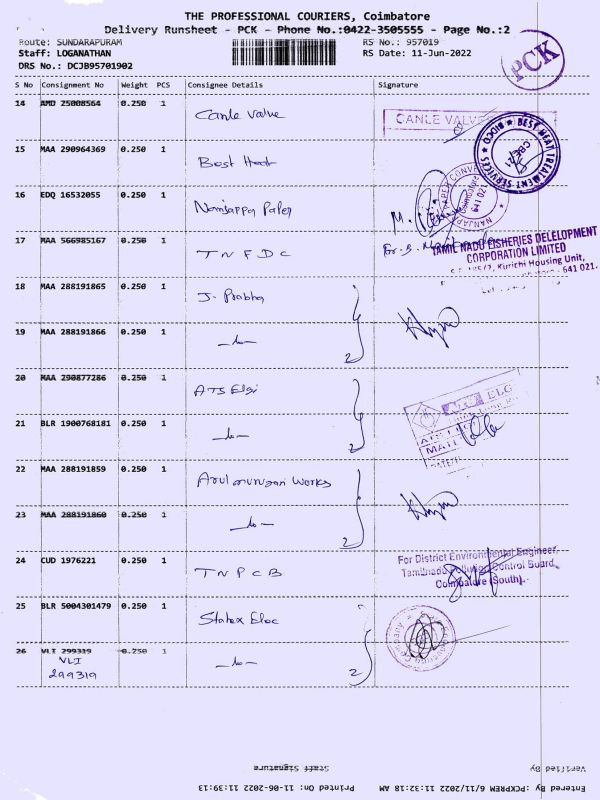 THE PROFESSIONAL COURIERS, Coimbatore
Delivery Runsheet - PCK - Phone No.:0422-3505555 - Page No.:2
Route: SUNDARAPURAM RS No.: 957019
Staff: LOGANATHAN RS Date: 11-Jun-2022
DRS No.: DCJB95701902
PCK
S No Consignment No Weight PCS Consignee Details Signature
14 AMD 25008564 0.250 1 Canle Valve
CANLE VALVE
15 MAA 290964369 0.250 1 Best Heat
BEST HEAT TREATMENT SERVICES
16 EDQ 16532055 0.250 1 Nanjappa Paper
17 MAA 566985167 0.250 1 TNFDC
TAMIL NADU FISHERIES DEVELOPMENT
CORPORATION LIMITED
Kurichi Housing Unit,
641 021.
18 MAA 288191865 0.250 1 J. Prabha
19 MAA 288191866 0.250 1 -do-
2
20 MAA 290877286 0.250 1 ATS Elgi
21 BLR 1900768181 0.250 1 -do-
2
22 MAA 288191859 0.250 1 Arulmurugan Works
23 MAA 288191860 0.250 1 -do-
2
24 CUD 1976221 0.250 1 TNPCB
For District Environmental Engineer,
Tamilnadu Pollution Control Board,
Coimbatore (South).
25 BLR 5004301479 0.250 1 Statex Elec
26 VLI 299319 0.250 1 -do-
VLI
299319
2
Staff Signature Verified By
Printed On: 11-06-2022 11:39:13 Entered By :PCKPREM 6/11/2022 11:32:18 AM